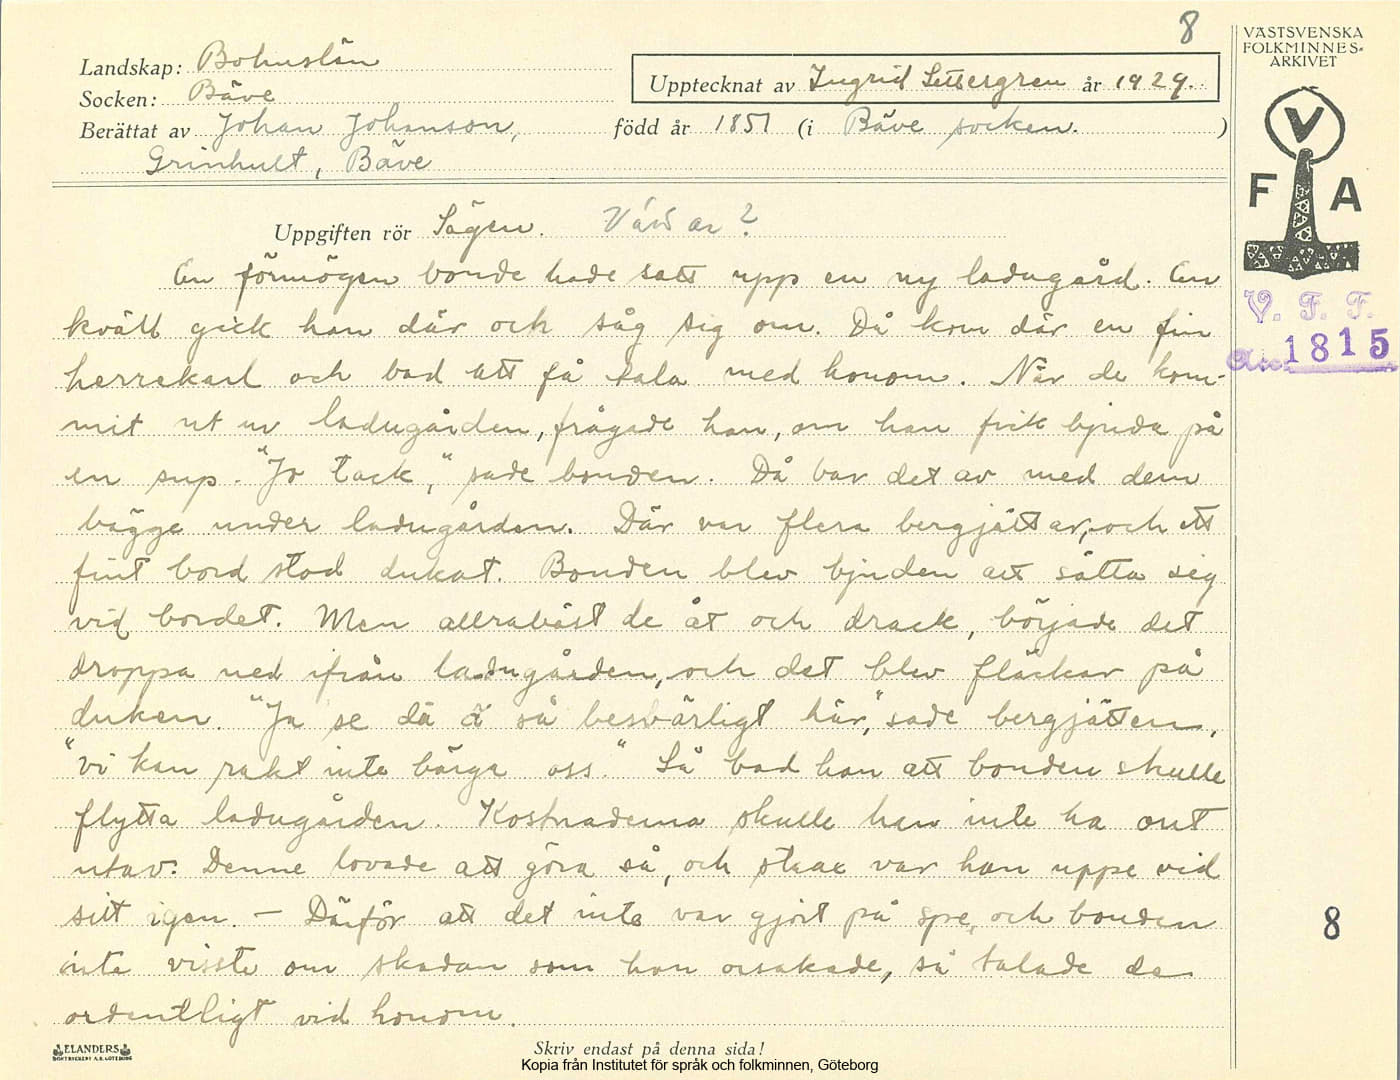 8
VÄSTSVENSKA
FOLKMINNES-
ARKIVET
Landskap: Bohuslän
Upptecknat av Ingrid Settergren år 1929.
Socken: Bäve
Berättat av Johan Johanson, född år 1851 (i Bäve socken. )
Grinhult, Bäve
V
F A
Uppgiften rör Sägen. ?
En förmögen bonde hade satt upp en ny ladugård. En
V. F. F.
kväll gick han där och såg sig om. Då kom där en fin
1815
herrekarl och bad att få tala med honom. När de kom-
mit ut ur ladugården, frågade han, om han fick bjuda på
en sup. "Jo tack," sade bonden. Då bar det av med dem
bägge under ladugården. Där var flera bergjättar, och ett
fint bord stod dukat. Bonden blev bjuden att sätta sig
vid bordet. Men allrabäst de åt och drack, började det
droppa ned ifrån ladugården, och det blev fläckar på
duken. "Ja se dä ä så besvärligt här," sade bergjätten,
"vi kan rakt inte bärga oss." Så bad han att bonden skulle
flytta ladugården. Kostnaderna skulle han inte ha ont
utav. Denne lovade att göra så, och strax var han uppe vid
sitt igen. – Därför att det inte var gjort på spe, och bonden
8
inte visste om skadan som han orsakade, så talade de
ordentligt vid honom.
ELANDERS
BOKTRYCKERI A.B. GÖTEBORG
Skriv endast på denna sida!
Kopia från Institutet för språk och folkminnen, Göteborg